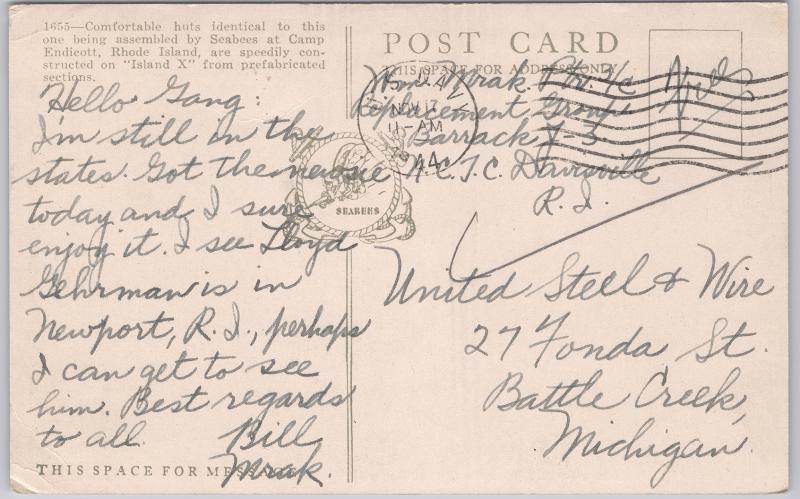 1655—Comfortable huts identical to this
one being assembled by Seabees at Camp
Endicott, Rhode Island, are speedily con-
structed on "Island X" from prefabricated
sections.
Hello Gang:
I'm still in the
states. Got the newsie
today and I sure
enjoy it. I see Lloyd
Gehrman is in
Newport, R.I., perhaps
I can get to see
him. Best regards
to all. Bill
Mrak.
THIS SPACE FOR MESSAGE
SEABEES
POST CARD
THIS SPACE FOR ADDRESS ONLY
Wm. Mrak
Replacement Group
Barrack J-3
N.C.T.C. Davisville
R.I.
U.S. NAVY
NOV 17
11-AM
1944
United Steel & Wire
27 Fonda St.
Battle Creek,
Michigan.